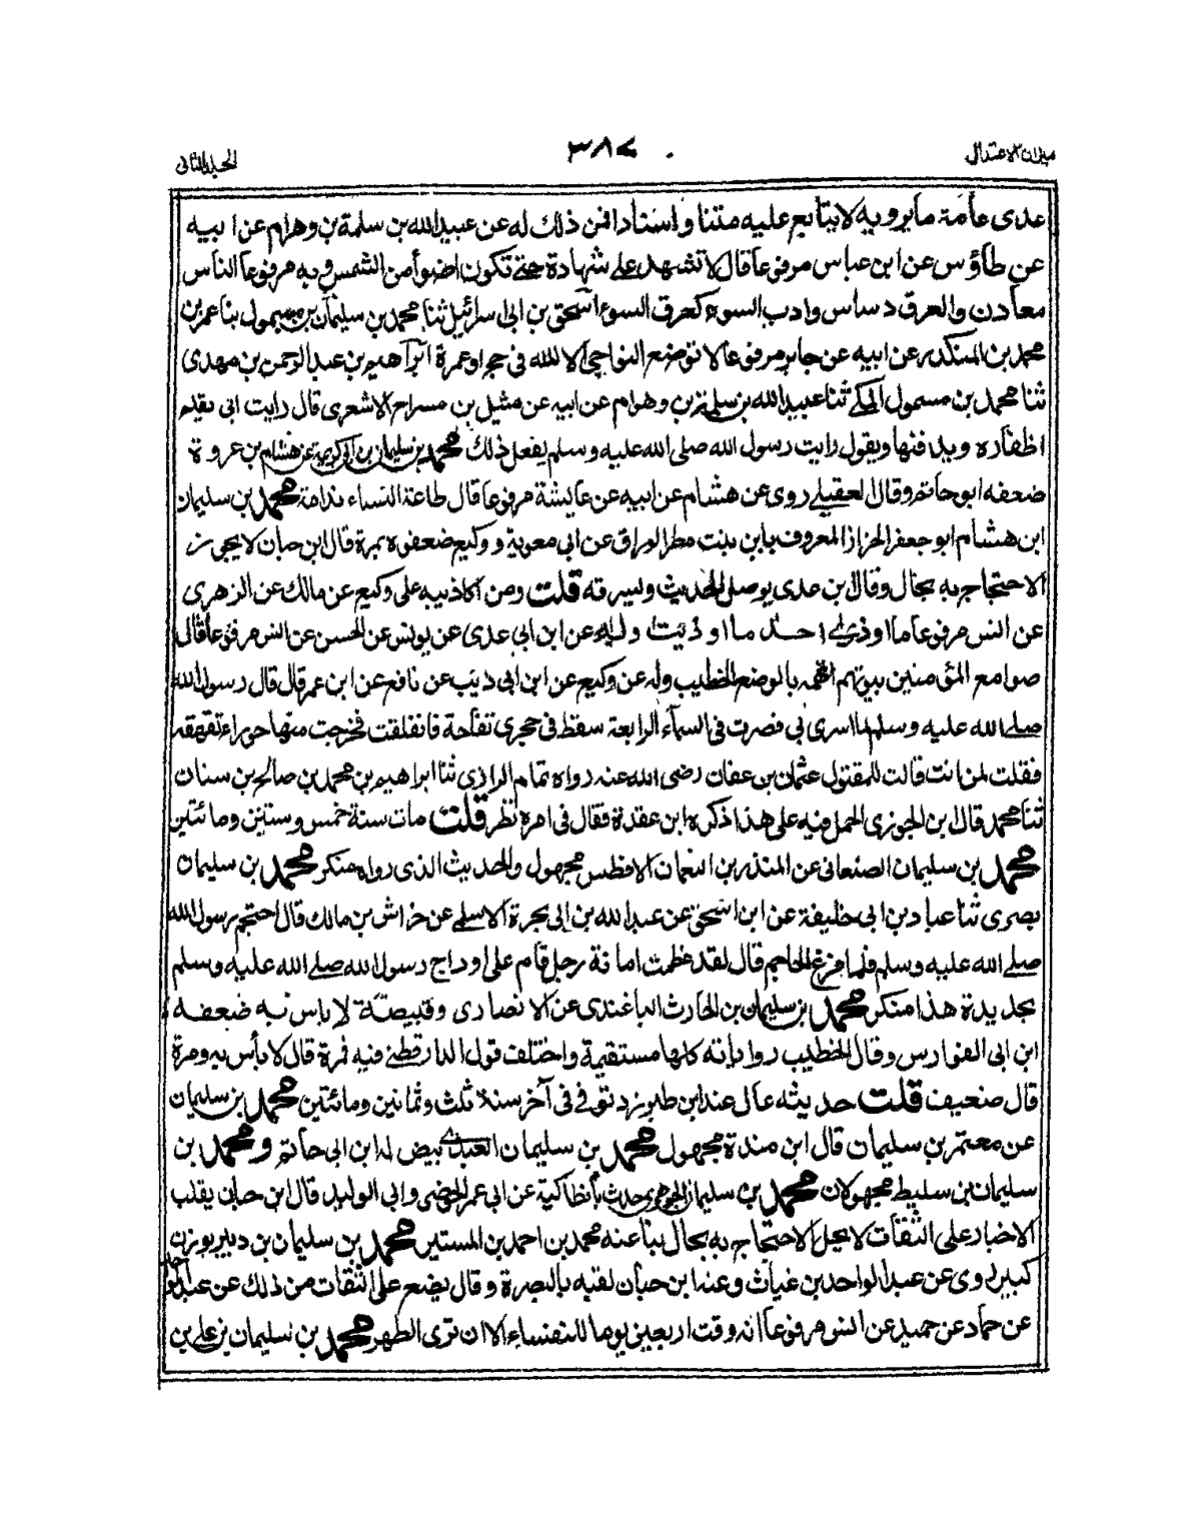 ميزان الاعتدال
٣٨٧
الجلد الثانی
عدی عامة ما يرويه لا يتابع عليه متنا واسنادا فمن ذلك له عن عبيد الله بن سلمة بن وهرام عن ابيه
عن طاؤس عن ابن عباس مرفوعا قال لا تشهد علے شهادة حتے تكون اضوأ من الشمس وبه مرفوعا الناس
معادن والعرق دساس وادب السوء كعرق السوء اسحق بن ابی اسرائيل ثنا محمد بن سليمان بن مسمول ثنا عمر بن
محمد بن المنكدر عن ابيه عن جابر مرفوعا لا توضع النواصی الا لله فی حج او عمرة ابراهيم بن عبد الرحمن بن مهدی
ثنا محمد بن مسمول المكے ثنا عبيد الله بن سلمة بن وهرام عن ابيه عن مثيل بن مسراح الاشعری قال رايت ابی يقلم
اظفاره ويدفنها ويقول رايت رسول الله صلی الله عليه وسلم يفعل ذلك محمد بن سليمان بن ابی كريمة عن هشام بن عروة
ضعفه ابو حاتم وقال العقيلے روی عن هشام عن ابيه عن عايشة مرفوعا قال طاعة النساء ندامة محمد بن سليمان
ابن هشام ابو جعفر الخزاز المعروف بابن بنت مطر الوراق عن ابی معوية ووكيع ضعفوه بمرة قال ابن حبان لا يجوز
الاحتجاج به بحال وقال بن عدی يوصل الحديث ويسرقه قلت ومن اكاذيبه علی وكيع عن مالك عن الزهری
عن انس مرفوعا ما اوذی احد ما اوذيت وله عن ابن ابی عدی عن يونس عن الحسن عن انس مرفوعا قال
صوامع المؤمنين بيوتهم اتهمه بالوضع الخطيب وله عن وكيع عن ابن ابی ذئب عن نافع عن ابن عمر قال قال رسول الله
صلے الله عليه وسلم لما اسری بی فصرت فی السمآء الرابعة سقط فی حجری تفاحة فانفلقت فخرجت منها حوراء تقهقه
فقلت لمن انت قالت للمقتول عثمان بن عفان رضی الله عنه رواه تمام الرازی ثنا ابراهيم بن محمد بن صالح بن سنان
ثنا محمد قال بن الجوزی الحمل فيه علی هذا ذكره ابن عقدة فقال فی امره نظر قلت مات سنة خمس وستين ومائتين
محمد بن سليمان الصنعانی عن المنذر بن النعمان الافطس مجهول والحديث الذی رواه منكر محمد بن سليمان
بصری ثنا عباد بن ابی خليفة عن ابن اسحق عن عبد الله بن ابی بجرة الاسلے عن خراش بن مالك قال احتجم رسول الله
صلے الله عليه وسلم فلما فرغ الحاجم قال لقد عظمت امانة رجل قام علی اوداج رسول الله صلے الله عليه وسلم
بحديدة هذا منكر محمد بن سليمان بن الحارث الباغندی عن الانصاری وقبيصة لا باس به ضعفه
ابن ابی الفوارس وقال الخطيب رواياته كلها مستقيمة واختلف قول الدارقطنے فيه فمرة قال لا بأس به ومرة
قال ضعيف قلت حديثه عالی عند ابن طبرزد توفے فی آخر سنة ثلث وثمانين ومائتين محمد بن سليمان
عن معتمر بن سليمان قال ابن مندة مجهول محمد بن سليمان العبدے بيض له ابن ابی حاتم ومحمد بن
سليمان بن سليط مجهولان محمد بن سليمان الجوهری يحدث بأنطاكية عن ابی عمر الحوضی وابی الوليد قال ابن حبان يقلب
الاخبار علی الثقات لا يحل الاحتجاج به بحال ثنا عنه محمد بن احمد بن المستنير محمد بن سليمان بن دبير يوزن
كبير روی عن عبد الواحد بن غياث وعنه ابن حبان لقيه بالبصرة وقال يضع علی الثقات من ذلك عن
عن حماد عن حميد عن انس مرفوعا انه وقت اربعين يوما للنفساء الا ان تری الطهر محمد بن سليمان بن علی بن